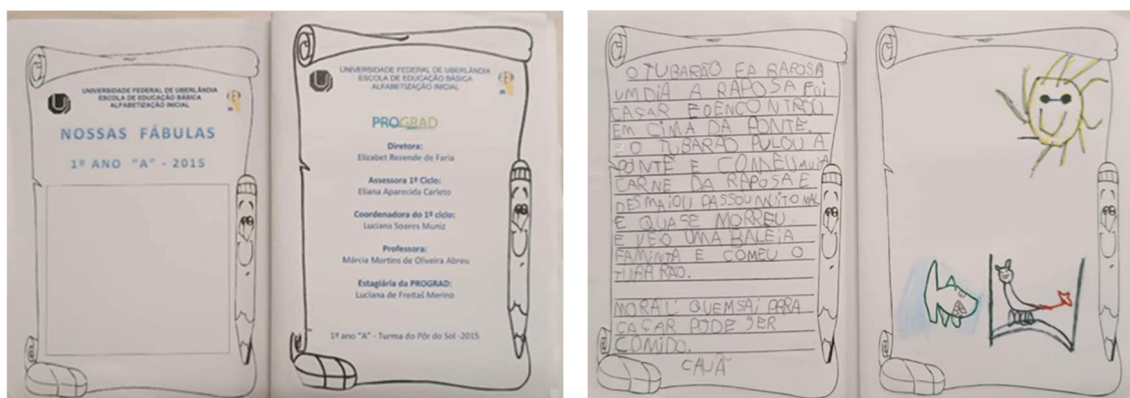 UNIVERSIDADE FEDERAL DE UBERLÂNDIA
ESCOLA DE EDUCAÇÃO BÁSICA
ALFABETIZAÇÃO INICIAL
NOSSAS FÁBULAS
1º ANO "A" - 2015
UNIVERSIDADE FEDERAL DE UBERLÂNDIA
ESCOLA DE EDUCAÇÃO BÁSICA
ALFABETIZAÇÃO INICIAL
PROGRAD
Diretora:
Elizabet Rezende de Faria
Assessora 1º Ciclo:
Eliana Aparecida Carleto
Coordenadora do 1º ciclo:
Luciana Soares Muniz
Professora:
Márcia Martins de Oliveira Abreu
Estagiária da PROGRAD:
Luciana de Freitas Merino
1º ano "A" - Turma do Pôr do Sol -2015
O TUBARÃO EA RAPOSA
UM DIA A RAPOSA FOI
CAÇAR E O ENCONTROU
EM CIMA DA PONTE.
E O TUBARÃO PULOU A
PONTE E COMEU MUITA
CARNE DA RAPOSA E
DESMAIOU PASSOU MUITO MAL
E QUASE MORREU.
E VEIO UMA BALEIA
FAMINTA E COMEU O
TUBARÃO.
MORAL: QUEM SAI PARA
CAÇAR PODE SER
COMIDO.
CAUÃ